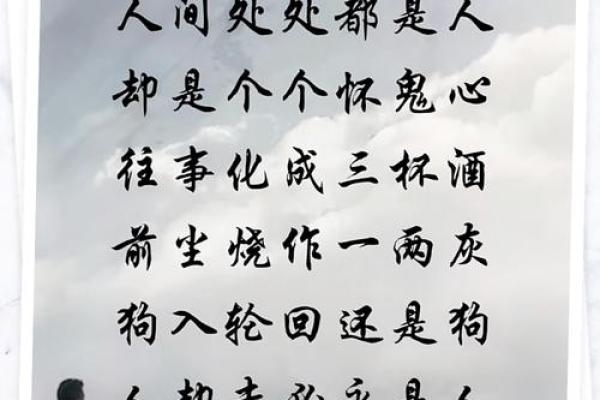 人间处处都是人
却是个个怀鬼心
往事化成三杯酒
前尘烧作一两灰
狗入轮回还是狗
人却未必永是人